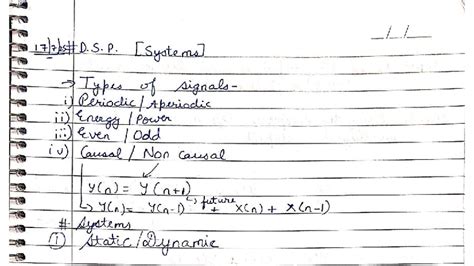 17/7/25 # D.S.P. [Systems]
→ Types of signals-
i) Periodic / Aperiodic
ii) Energy / Power
iii) Even / Odd
iv) Causal / Non Causal
y(n) = y(n+1)
↳ future
↳ y(n) = y(n-1) + x(n) + x(n-1)
# Systems
① Static/Dynamic